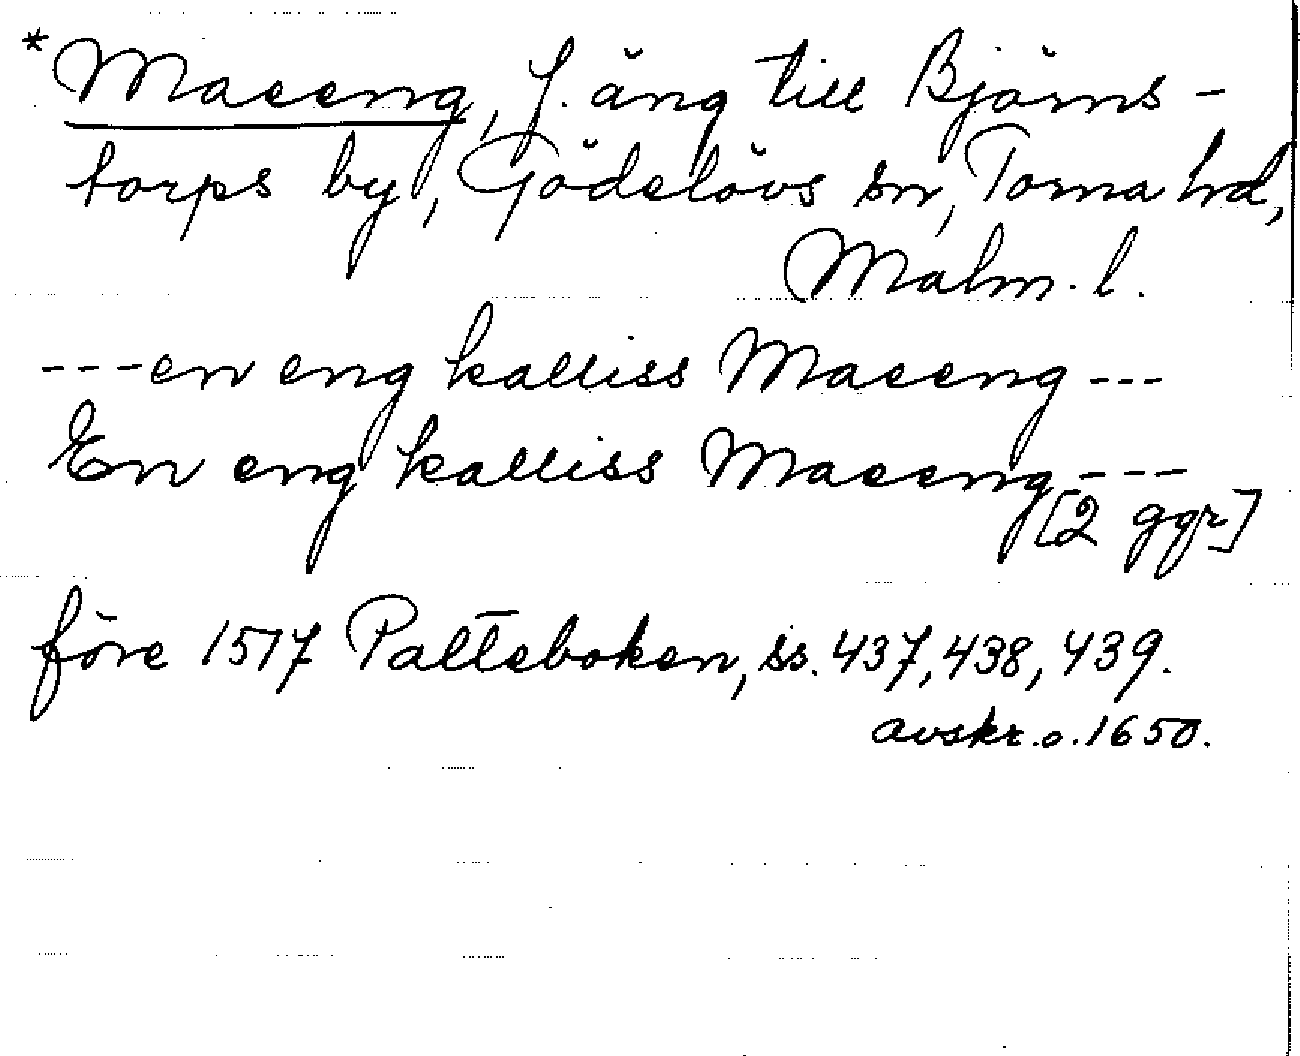 *Maeeng, f. äng till Björns-
torps by, Gödelövs sn, Torna hd,
Malm. l.
---en eng kalliss Maeeng---
En eng kalliss Maeeng---
[2 ggr]
före 1517 Palteboken, ss. 437, 438, 439.
avskr. o. 1650.